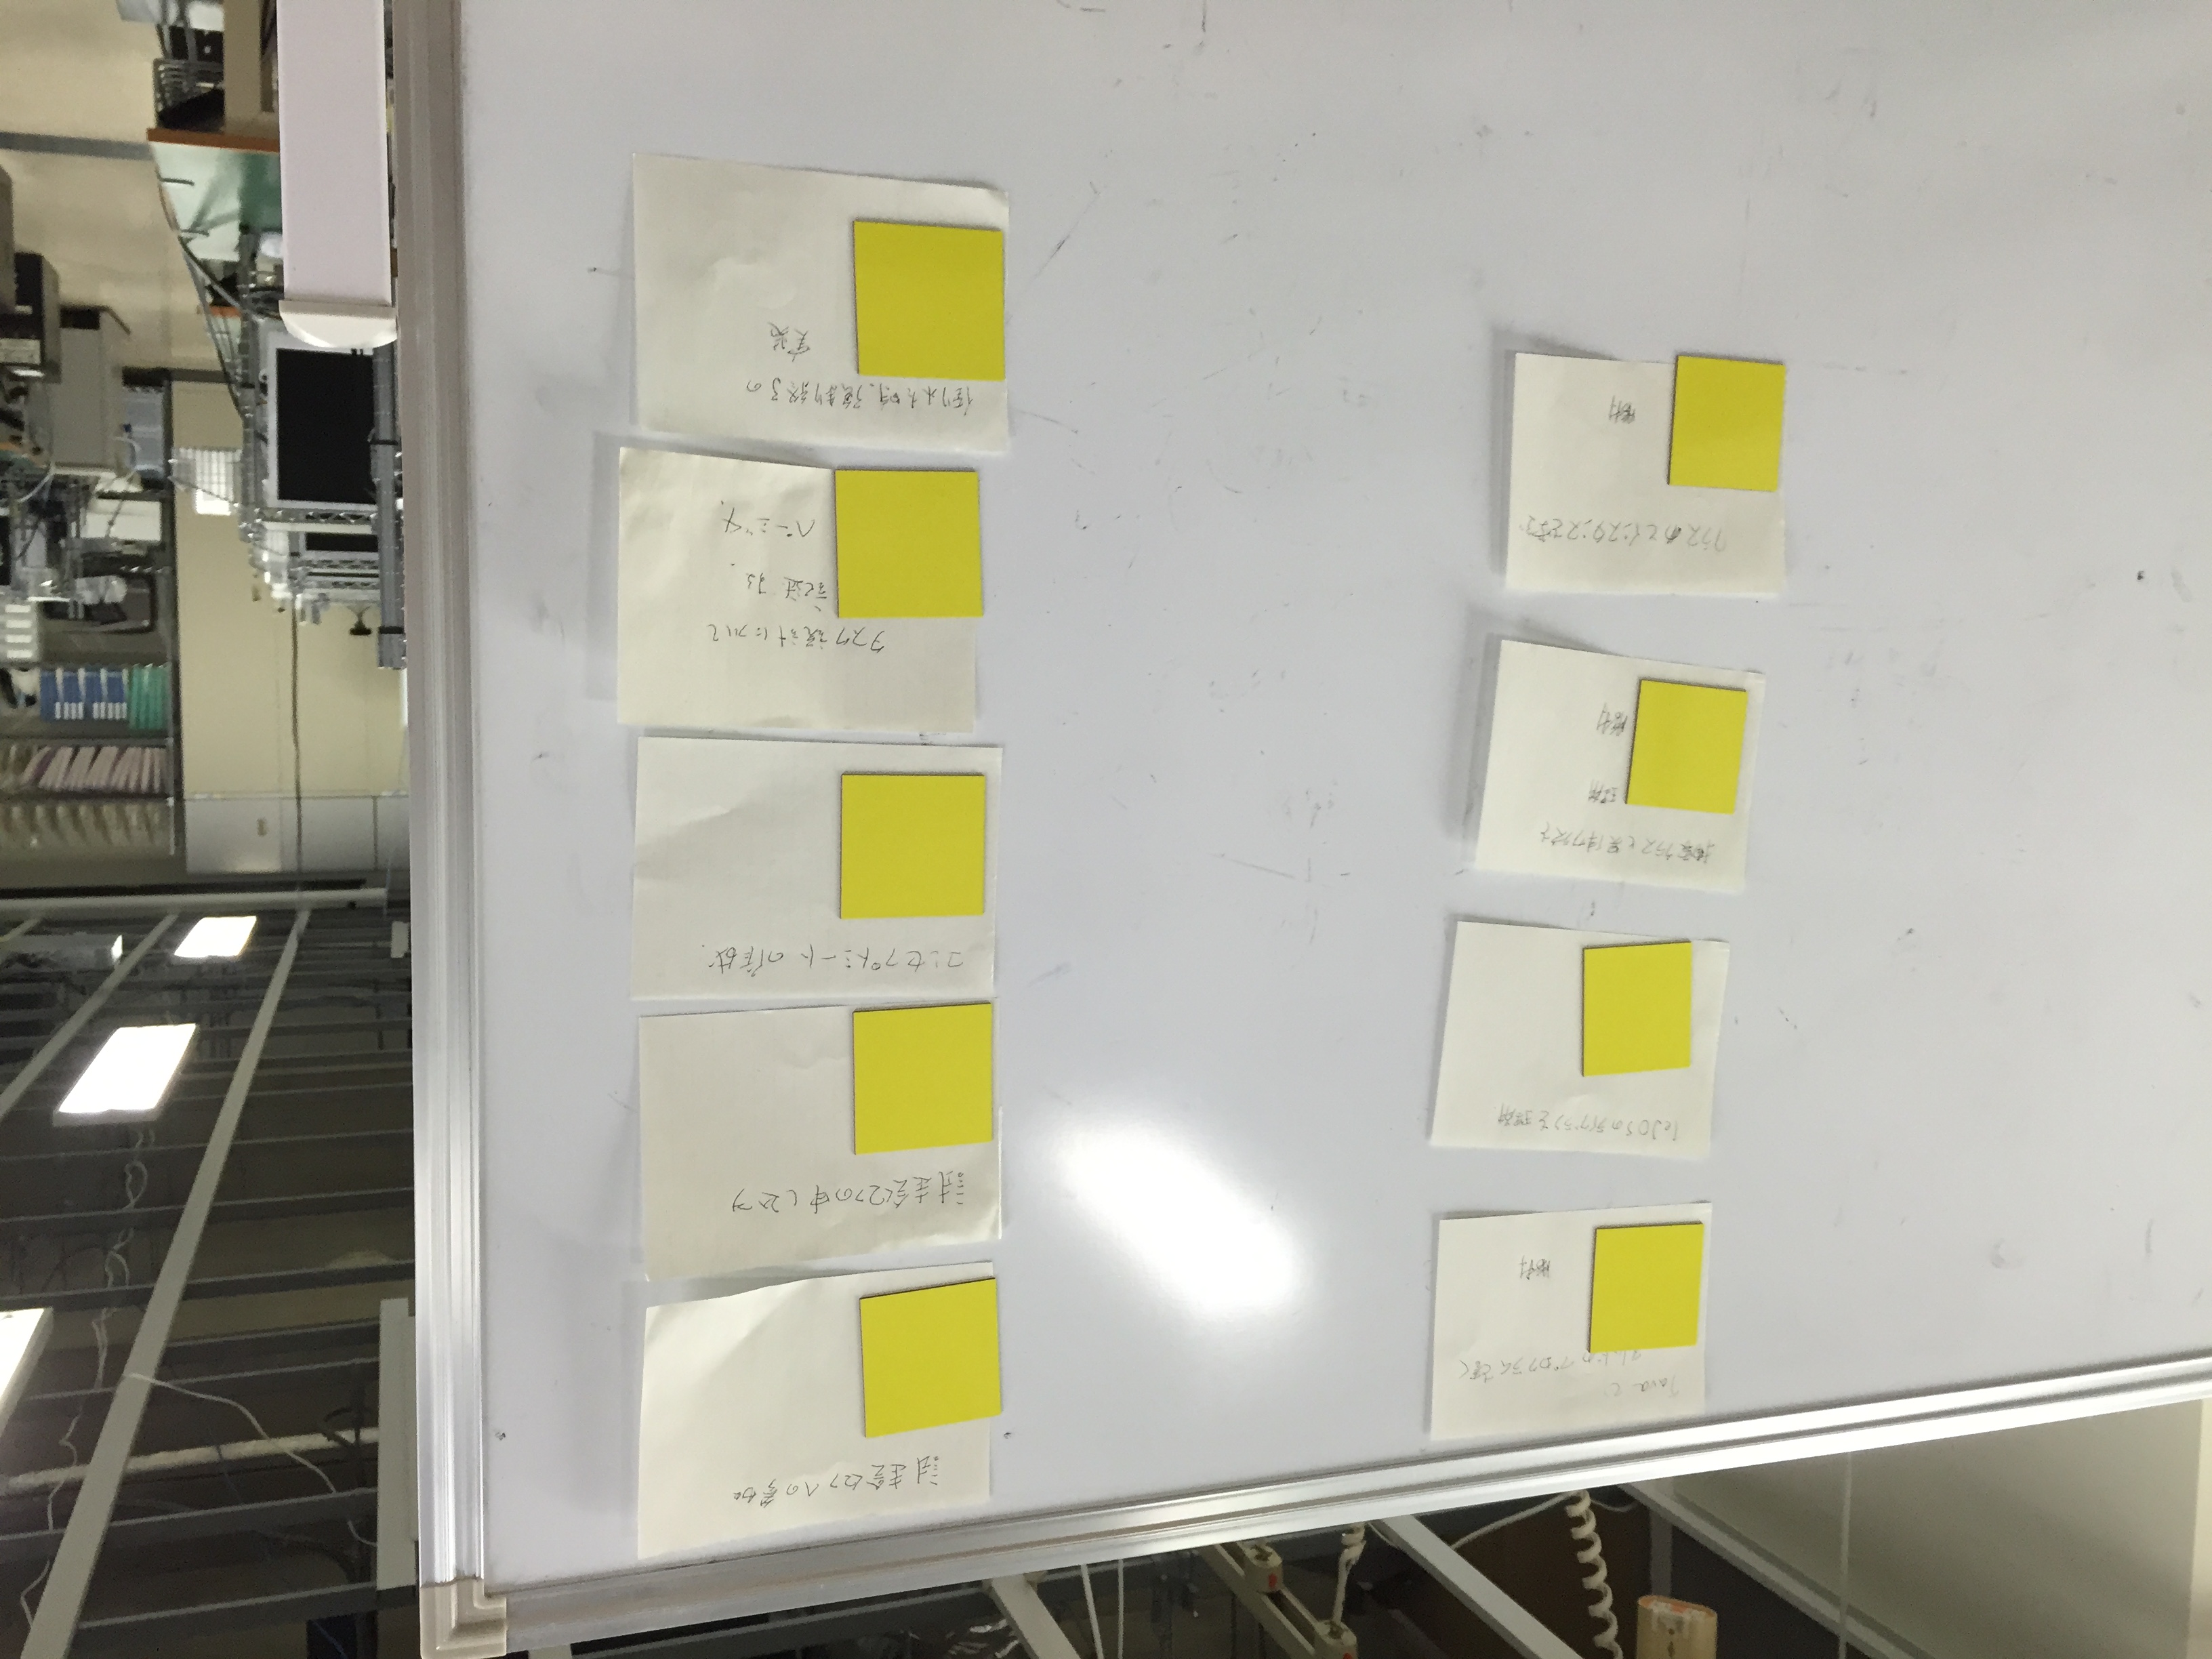 Javaで
スレッドのプログラムを書く
勝利
leJOSのライブラリを理解
抽象クラスと具体クラスを
理解
勝利
クラスめとインスタンスを学ぶ
勝利
試走会<2>への参加
試走会<2>の申し込み
コンセプトシートの作成.
タスク設計について
記述する.
ページ4.
倒れた時、強制終了の
実装